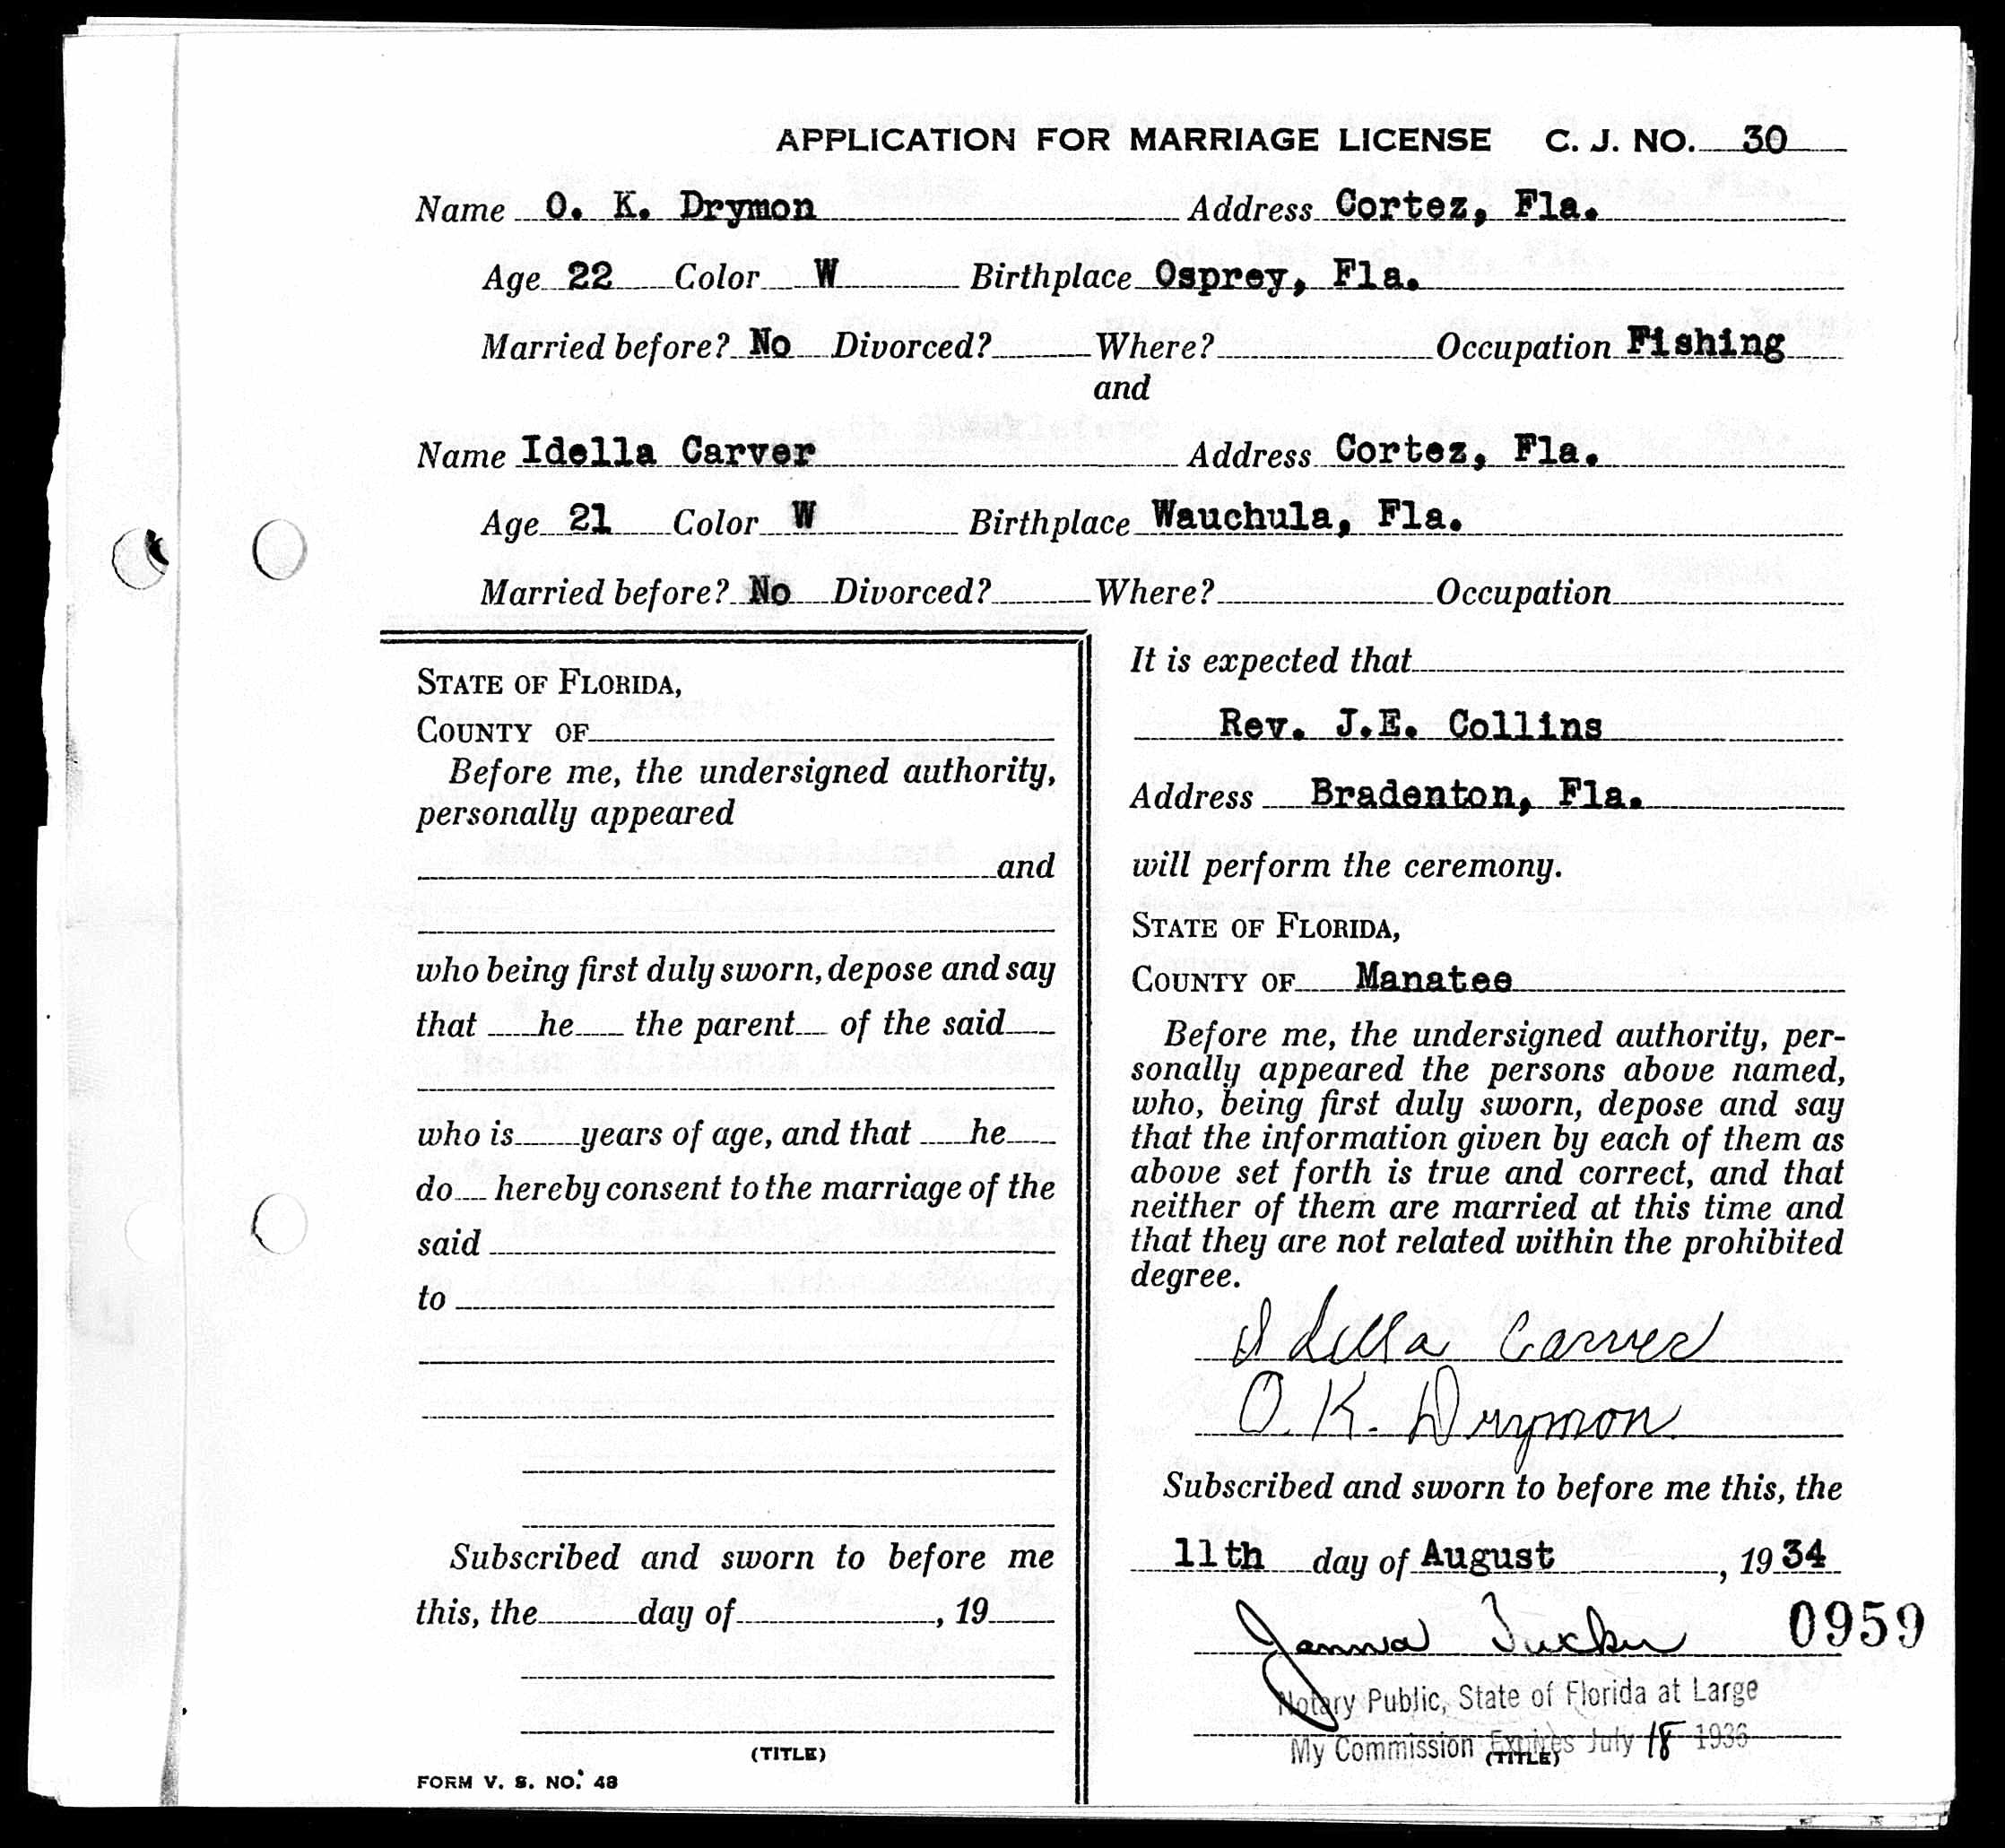 APPLICATION FOR MARRIAGE LICENSE C. J. NO. 30
Name O. K. Drymon Address Cortez, Fla.
Age 22 Color W Birthplace Osprey, Fla.
Married before? No Divorced? Where? Occupation Fishing
and
Name Idella Carver Address Cortez, Fla.
Age 21 Color W Birthplace Wauchula, Fla.
Married before? No Divorced? Where? Occupation
STATE OF FLORIDA,
COUNTY OF
Before me, the undersigned authority,
personally appeared
and
who being first duly sworn, depose and say
that he the parent of the said
who is years of age, and that he
do hereby consent to the marriage of the
said
to
Subscribed and sworn to before me
this, the day of , 19
(TITLE)
FORM V. S. NO. 48
It is expected that
Rev. J.E. Collins
Address Bradenton, Fla.
will perform the ceremony.
STATE OF FLORIDA,
COUNTY OF Manatee
Before me, the undersigned authority, per-
sonally appeared the persons above named,
who, being first duly sworn, depose and say
that the information given by each of them as
above set forth is true and correct, and that
neither of them are married at this time and
that they are not related within the prohibited
degree.
Idella Carver
O. K. Drymon
Subscribed and sworn to before me this, the
11th day of August , 19 34
Tucker 0959
Notary Public, State of Florida at Large
My Commission Expires July 18 1936
(TITLE)